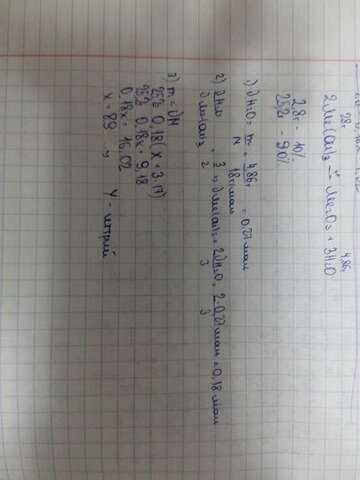 28г 4,86г
2Me(OH)₃ = Me₂O₃ + 3H₂O
2,8г - 10%
25,2г - 90%
1) νH₂O = m/M = 4,86г/18г/моль = 0,27 моль
2) νH₂O/νMe(OH)₃ = 3/2 ; νMe(OH)₃ = 2νH₂O/3 = 2·0,27моль/3 = 0,18 моль
3) m = νM
25,2 = 0,18(x + 3·17)
25,2 = 0,18x + 9,18
0,18x = 16,02
x = 89 ; Y - иттрий